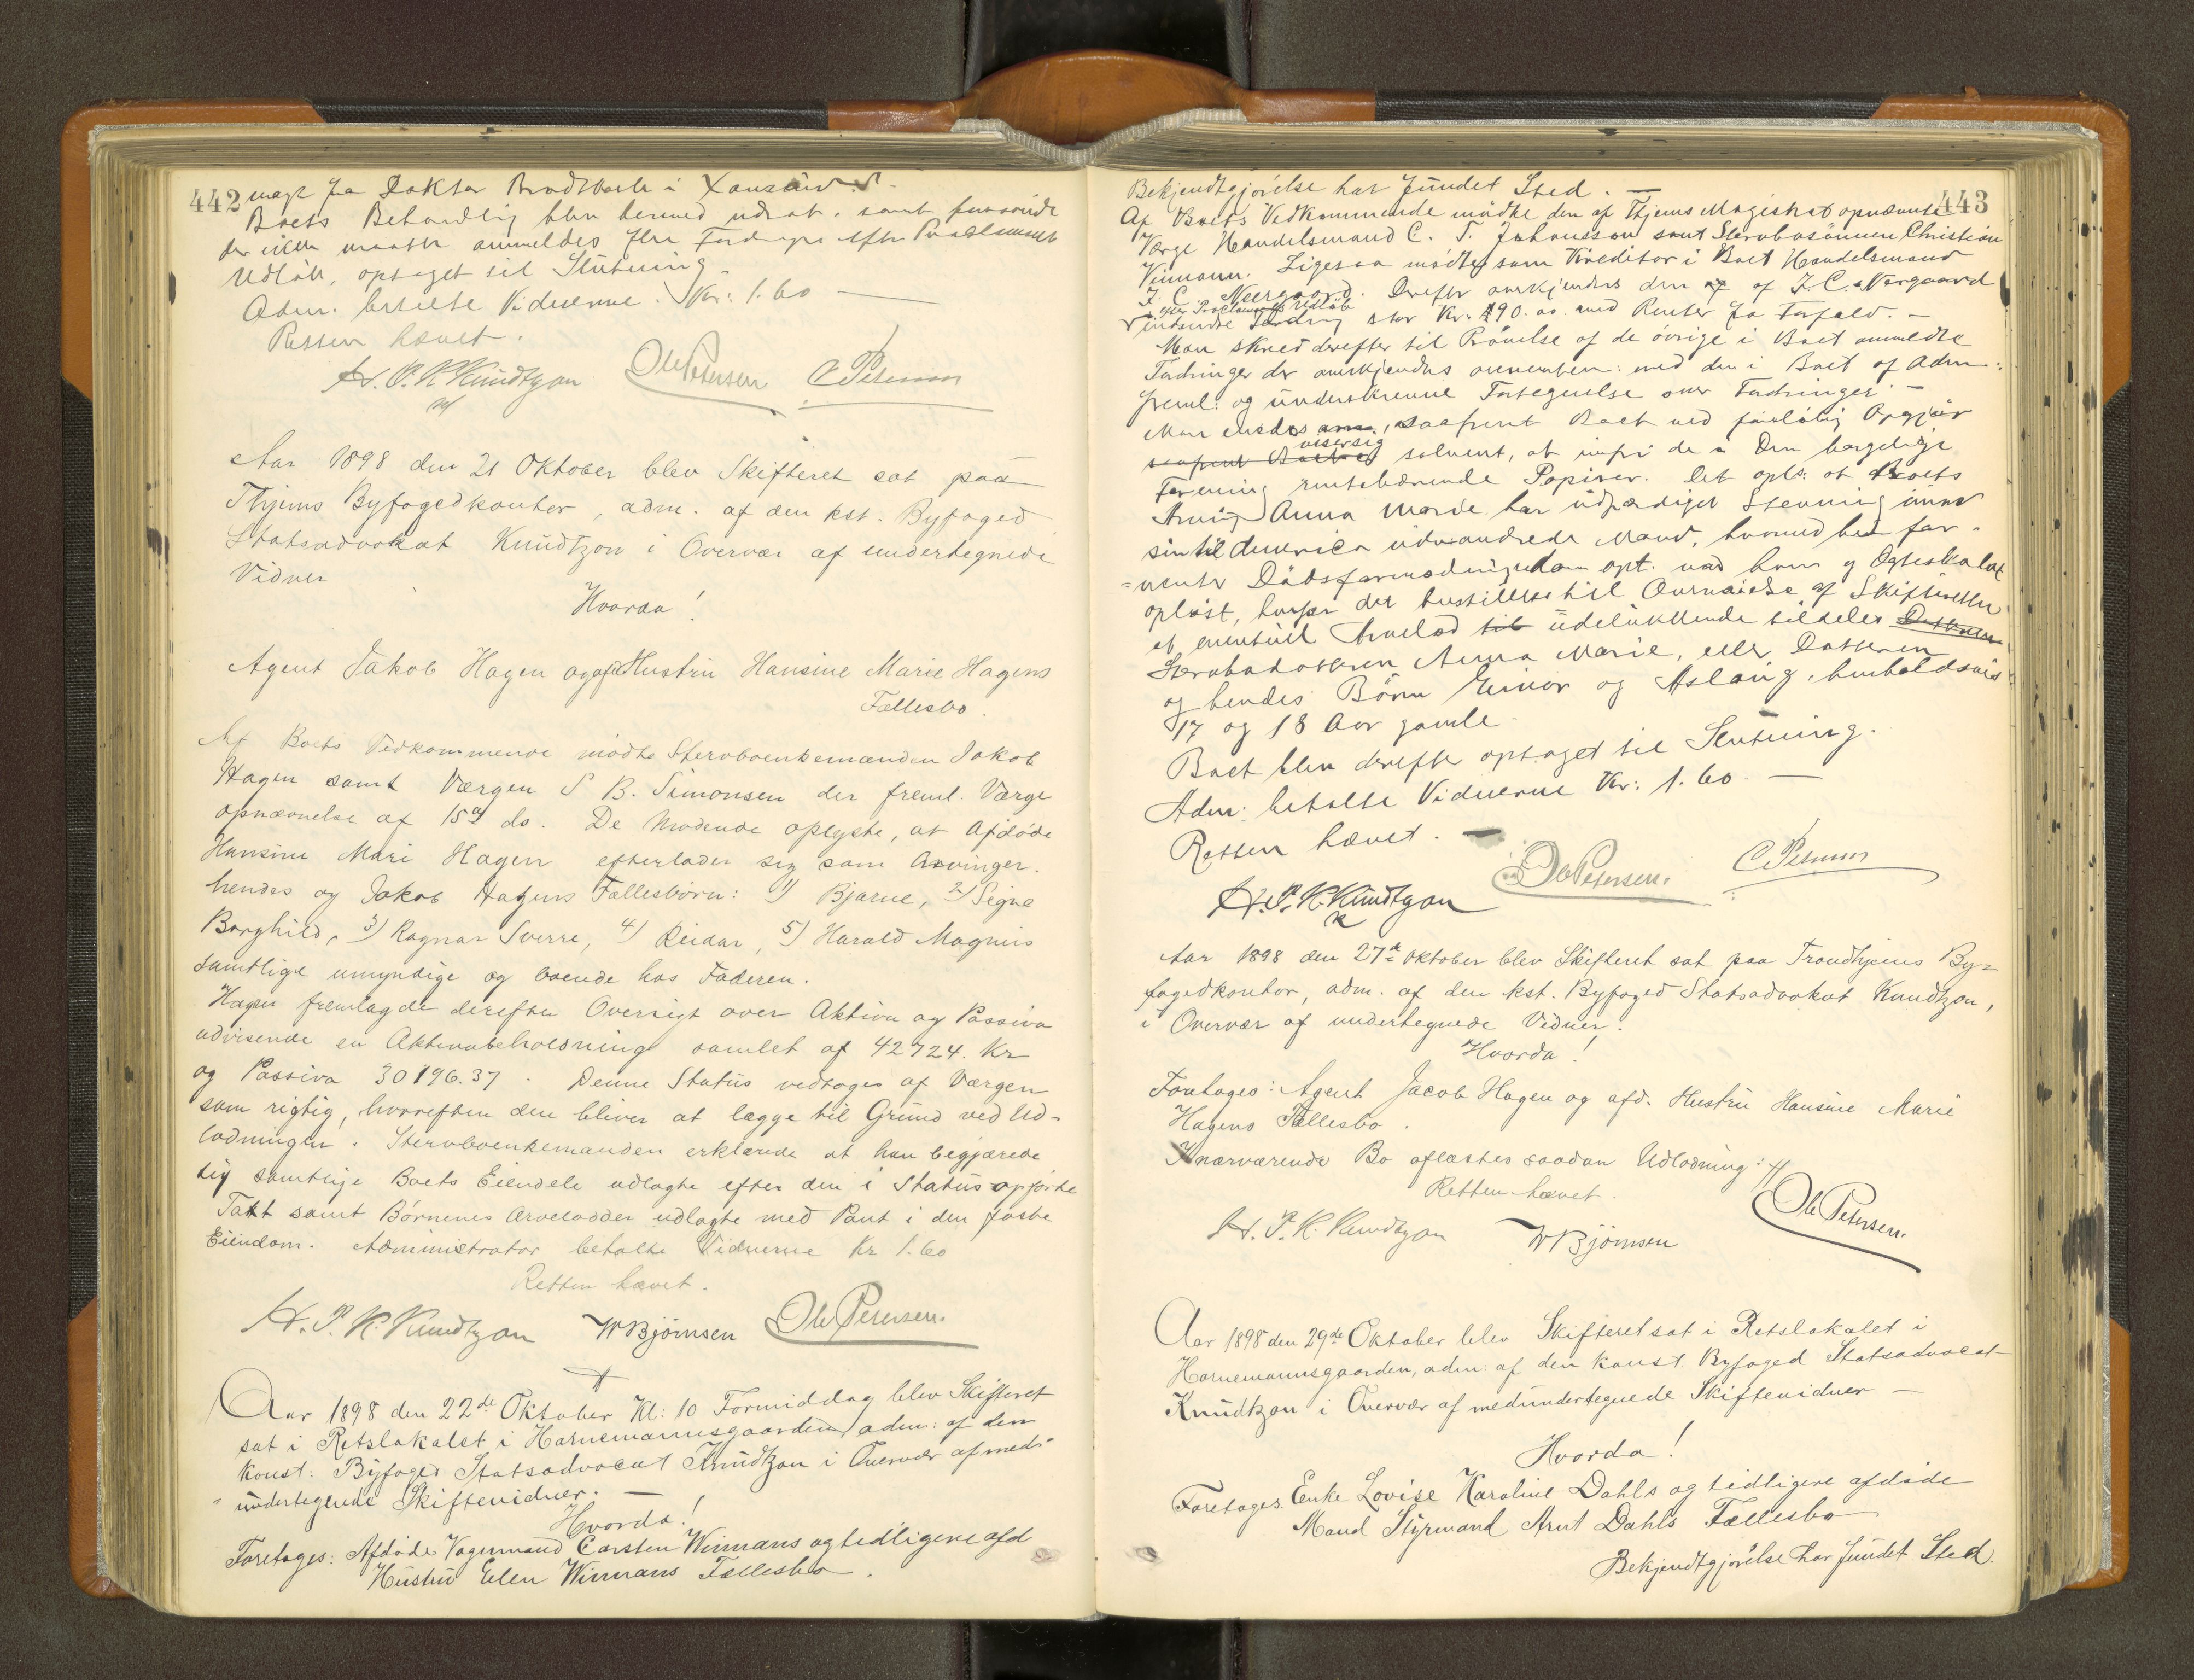 442
magt fra Doktor i
Boets Behandling blev hermed udsat, samt forsaavidt
der ikke maatte anmeldes flere Fordringer efter Proclamaets
Udløb, optaget til Slutning.
Adm. betalte Vidnerne Kr: 1.60 —
Retten hævet.
H. P. K. Knudtzon Ole Petersen C Petersen
Aar 1898 den 21 Oktober blev Skifteret sat paa
Thjems Byfogedkontor, adm. af den kst. Byfoged
Statsadvokat Knudtzon i Overvær af undertegnede
Vidner
Hvorda!
Agent Jakob Hagen og afd Hustru Hansine Marie Hagens
Fællesbo.
Af Boets Vedkommende mødte Stervboenkemanden Jakob
Hagen samt Værgen S B. Simonsen der freml. Værge
opnævnelse af 15de ds. De Mødende oplyste, at Afdøde
Hansine Mari Hagen efterlader sig som Arvinger.
hendes og Jakob Hagens Fællesbørn: 1) Bjarne, 2) Signe
Borghild, 3) Ragnar Sverre, 4) Reidar, 5) Harald Magnus
samtlige umyndige og boende hos Faderen.
Hagen fremlagde derefter Oversigt over Aktiva og Passiva
udvisende en Aktivabeholdning samlet af 42724. Kr
og Passiva 30196.37. Denne Status vedtoges af Værgen
som rigtig, hvorefter den bliver at lægge til Grund ved Ud-
lodningen. Stervboenkemanden erklærede at han begjærede
sig samtlige Boets Eiendele udlagte efter den i Status opførte
Taxt samt Børnenes Arvelodder udlagte med Pant i den faste
Eiendom. Administrator betalte Vidnerne Kr 1.60
Retten hævet.
H. P. K. Knudtzon W Bjørnsen Ole Petersen.
Aar 1898 den 22de Oktober Kl: 10 Formiddag blev Skifteret
sat i Retslokalet i Hornemannsgaarden, adm: af den
konst: Byfoged Statsadvocat Knudtzon i Overvær af med-
undertegnede Skiftevidner. —
Hvorda!
Foretages: Afdøde Vognmand Carsten Winmans og tidligere afd
Hustru Elen Winmans Fællesbo.
443
Bekjendtgjørelse har fundet Sted. —
Af Boets Vedkommende mødte den af Thjems Magistrat opnævnte
Værge Handelsmand C. T. Johansson samt Stervbosønnen Christian
Vinmann. Ligesaa mødte som Kreditor i Boet Handelsmand
J. C. Neergaard. Derefter anerkjendes den af J. C. Nergaard
efter Proclamaets Udløb
indsendte Fordring stor Kr. 190.00 med Renter fra Forfald. —
Man skred derefter til Prøvelse af de øvrige i Boet anmeldte
Fordringer der anerkjendes overensst: med den i Boet af Adm:
freml: og underskrevne Fortegnelse over Fordringer —
Man enedes, saafremt Boet ved foreløbig Opgjør
viser sig
solvent, at indfri de a Den borgerlige
Forening rentebærende Papirer. Det opl: at Boets
Arving Anna Marie har udfærdiget Stevning imod
sin til Amerika udvandrede Mand, hvorved hed for-
venter Dødsformodningsdom opt. ved ham og Ægteskabet
opløst, hvorfor det henstilles til Overveielse af Skifteretten
at eventuel Arvelod til udelukkende tildeles
Stervbodatteren Anna Marie, eller Datteren
og hendes Børn Einar og Aslaug, henholdsvis
17 og 18 Aar gamle.
Boet blev derefter optaget til Slutning.
Adm: betalte Vidnerne Kr: 1.60 —
Retten hævet. —
H. P. K. Knudtzon Ole Petersen. C Petersen
Aar 1898 den 27de Oktober blev Skifteret sat paa Trondhjems By-
fogedkontor, adm. af den kst. Byfoged Statsadvokat Knudtzon,
i Overvær af undertegnede Vidner.
Hvorda!
Foretages: Agent Jacob Hagen og afd. Hustru Hansine Marie
Hagens Fællesbo.
I nærværende Bo aflæstes saadan Udlodning: //
Retten hævet.
H. P. K. Knudtzon W Bjørnsen Ole Petersen.
Aar 1898 den 29de Oktober blev Skifteret sat i Retslokalet i
Hornemannsgaarden, adm: af den konst. Byfoged Statsadvocat
Knudtzon i Overvær af medundertegnede Skiftevidner —
Hvorda!
Foretages Enke Lovise Karoline Dahls og tidligere afdøde
Mand Styrmand Arnt Dahls Fællesbo
Bekjendtgjørelse har fundet Sted.